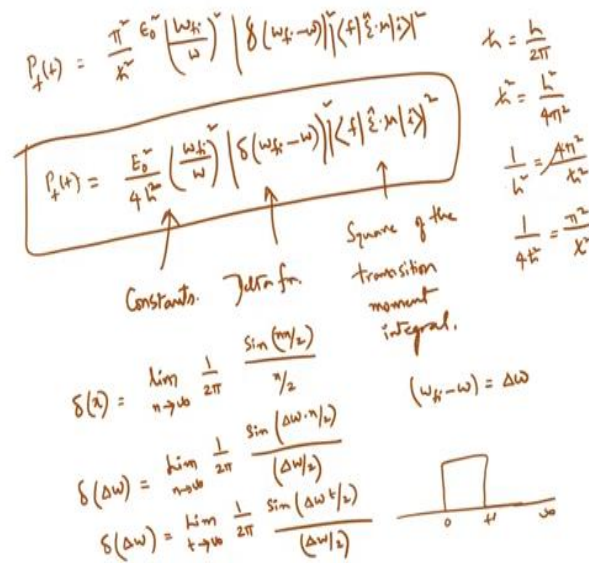 P_f(t) = π²/ħ² E₀² (ω_fi/ω)² |δ(ω_fi-ω)|² |⟨f|ε̂·μ|i⟩|²
ħ = h/2π
ħ² = h²/4π²
P_f(t) = E₀²/4h² (ω_fi/ω)² |δ(ω_fi-ω)|² |⟨f|ε̂·μ|i⟩|²
1/h² = 4π²/ħ²
1/4ħ² = π²/
Constants. Delta fn. Square of the
transition
moment
integral.
δ(x) = lim n→∞ 1/2π sin(nx/2)/x/2
(ω_fi-ω) = Δω
δ(Δω) = Lim n→∞ 1/2π sin(Δω·n/2)/(Δω/2)
δ(Δω) = Lim t→∞ 1/2π sin(Δωt/2)/(Δω/2)
0 ∞